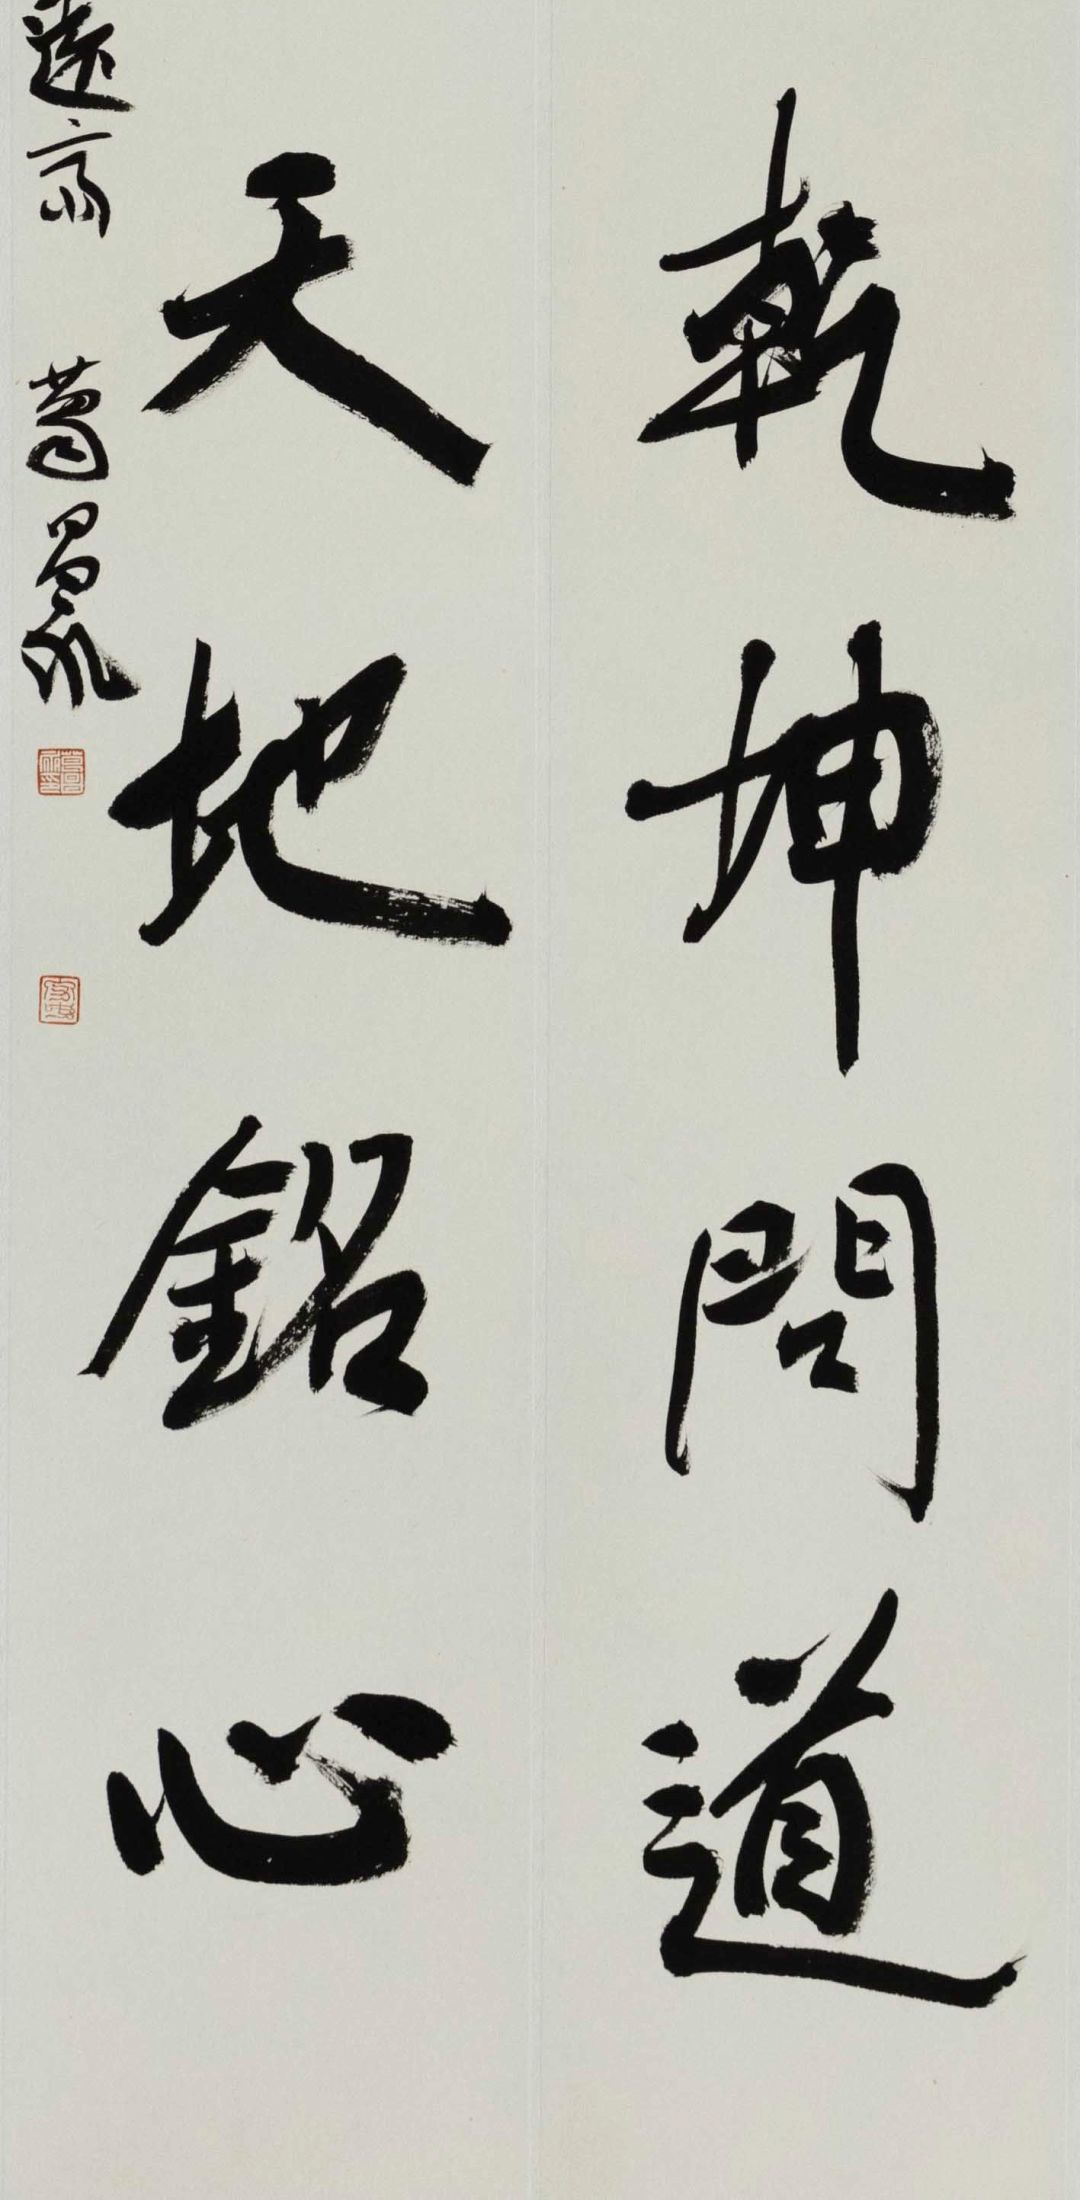 乾坤問道
天地銘心
齋 葛昌永